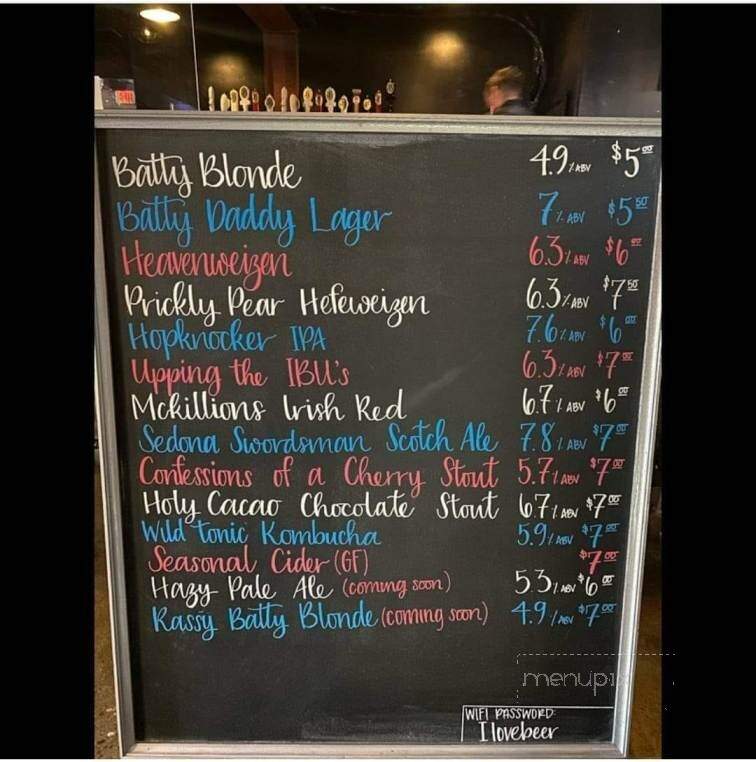 Batty Blonde 4.9% ABV $5.00
Batty Daddy Lager 7% ABV $5.50
Heavenweizen 6.3% ABV $6.00
Prickly Pear Hefeweizen 6.3% ABV $7.50
Hopknocker IPA 7.6% ABV $6.00
Upping the IBU's 6.3% ABV $7.00
Mckillions Irish Red 6.7% ABV $6.00
Sedona Swordsman Scotch Ale 7.8% ABV $7.00
Confessions of a Cherry Stout 5.7% ABV $7.00
Holy Cacao Chocolate Stout 6.7% ABV $7.00
Wild Tonic Kombucha 5.9% ABV $7.00
Seasonal Cider (GF) $7.00
Hazy Pale Ale (coming soon) 5.3% ABV $6.00
Rassy Batty Blonde (coming soon) 4.9% ABV $7.00
menupix
WIFI PASSWORD:
Ilovebeer